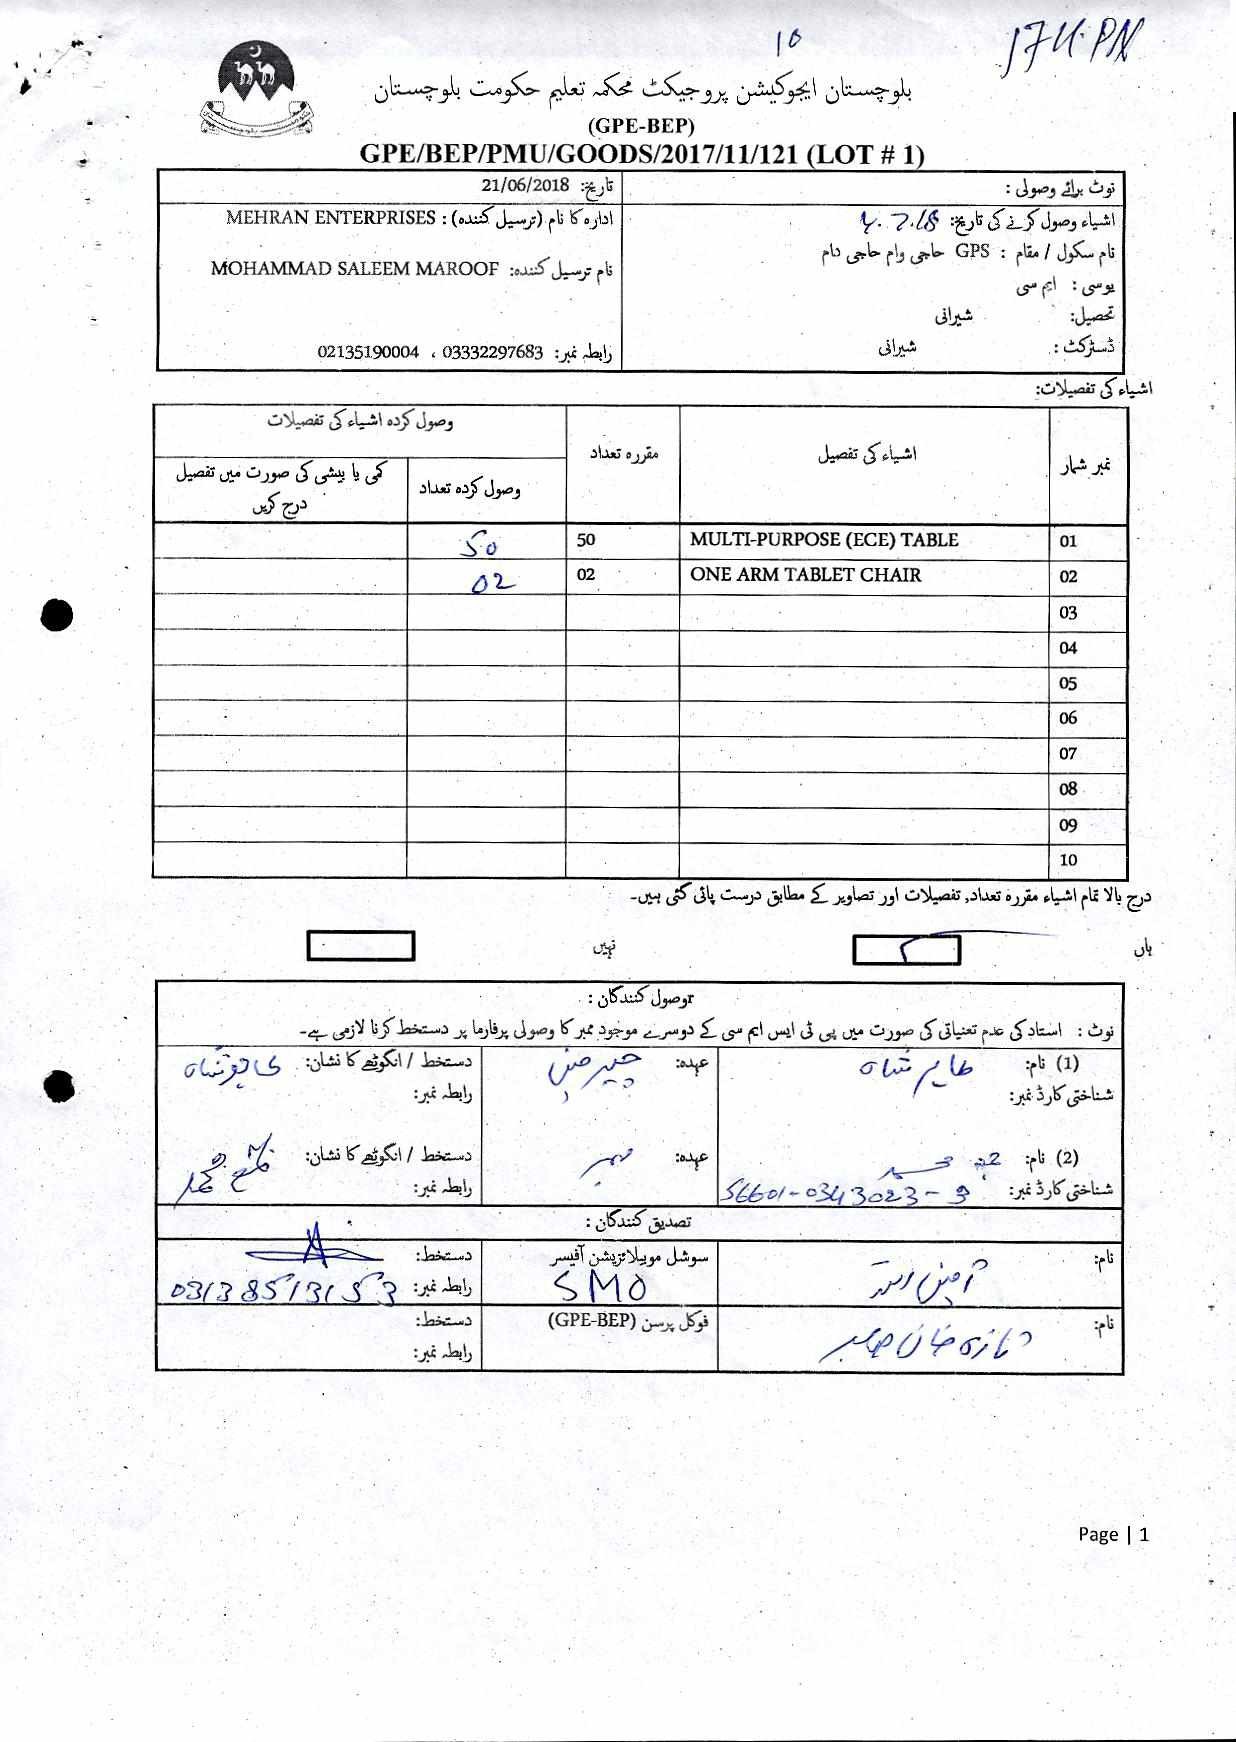 10
بلوچستان ایجوکیشن پروجیکٹ محکمہ تعلیم حکومت بلوچستان
(GPE-BEP)
GPE/BEP/PMU/GOODS/2017/11/121 (LOT # 1)
نوٹ برائے وصولی :
تاریخ: 21/06/2018
اشیاء وصول کرنے کی تاریخ: 4.7.18
ادارہ کا نام (ترسیل کنندہ) : MEHRAN ENTERPRISES
نام سکول / مقام : GPS حاجی وام حاجی دام
نام ترسیل کنندہ: MOHAMMAD SALEEM MAROOF
یوسی : ایم سی
تحصیل: شیرانی
ڈسٹرکٹ : شیرانی
رابطہ نمبر: 03332297683 ، 02135190004
اشیاء کی تفصیلات:
نمبر شمار
اشیاء کی تفصیل
مقررہ تعداد
وصول کردہ اشیاء کی تفصیلات
وصول کردہ تعداد
کمی یا بیشی کی صورت میں تفصیل
درج کریں
01 MULTI-PURPOSE (ECE) TABLE 50 50
02 ONE ARM TABLET CHAIR 02 02
03
04
05
06
07
08
09
10
درج بالا تمام اشیاء مقررہ تعداد, تفصیلات اور تصاویر کے مطابق درست پائی گئی ہیں۔
ہاں
نہیں
rوصول کنندگان :
نوٹ : استاد کی عدم تعنیاتی کی صورت میں پی ٹی ایس ایم سی کے دوسرے موجود ممبر کا وصولی پرفارما پر دستخط کرنا لازمی ہے۔
(1) نام:
عہدہ: چیرمین
دستخط / انگوٹھے کا نشان:
شناختی کارڈ نمبر:
رابطہ نمبر:
(2) نام:
عہدہ: ممبر
دستخط / انگوٹھے کا نشان:
شناختی کارڈ نمبر: 56601-0343023-9
رابطہ نمبر:
تصدیق کنندگان :
نام:
سوشل موبیلائزیشن آفیسر
SMO
دستخط:
رابطہ نمبر: 03138513153
نام:
فوکل پرسن (GPE-BEP)
دستخط:
رابطہ نمبر:
Page | 1